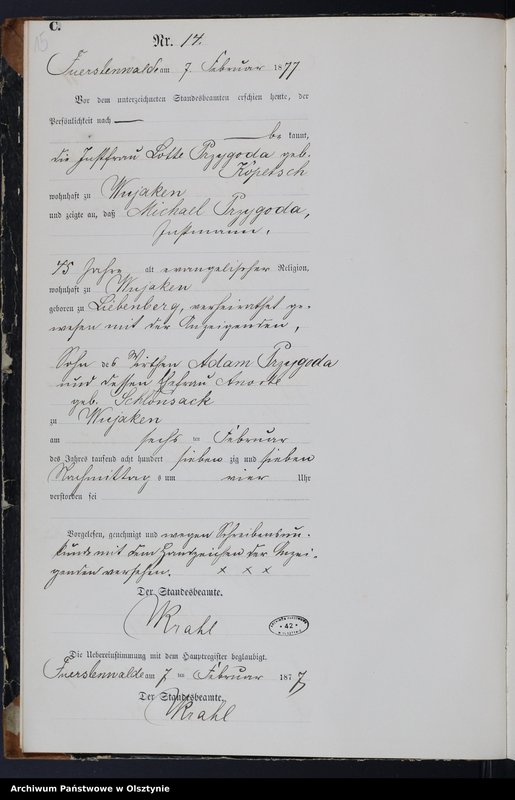 C.
15
Nr. 14.
Fuerstenwalde am 7. Februar 1877
Vor dem unterzeichneten Standesbeamten erschien heute, der
Persönlichkeit nach
be kannt,
die Instfrau Lotte Przygoda geb.
Köpetsch
wohnhaft zu Wujaken
und zeigte an, daß Michael Przygoda,
Instmann,
75 Jahre alt evangelischer Religion,
wohnhaft zu Wujaken
geboren zu Liebenberg, verheirathet ge-
wesen mit der Anzeigenden,
Sohn des Wirthen Adam Przygoda
und dessen Ehefrau
geb. Schlonsack
zu Wujaken
am sechs ten Februar
des Jahres tausend acht hundert sieben zig und sieben
Nachmittag s um vier Uhr
verstorben sei
Vorgelesen, genehmigt und wegen Schreibensun-
kunde mit dem Handzeichen der Anzei-
genden versehen. x x x
Der Standesbeamte.
Krahl
42
Die Uebereinstimmung mit dem Hauptregister beglaubigt.
Fuerstenwalde am 7 ten Februar 1877
Der Standesbeamte.
Krahl
Archiwum Państwowe w Olsztynie